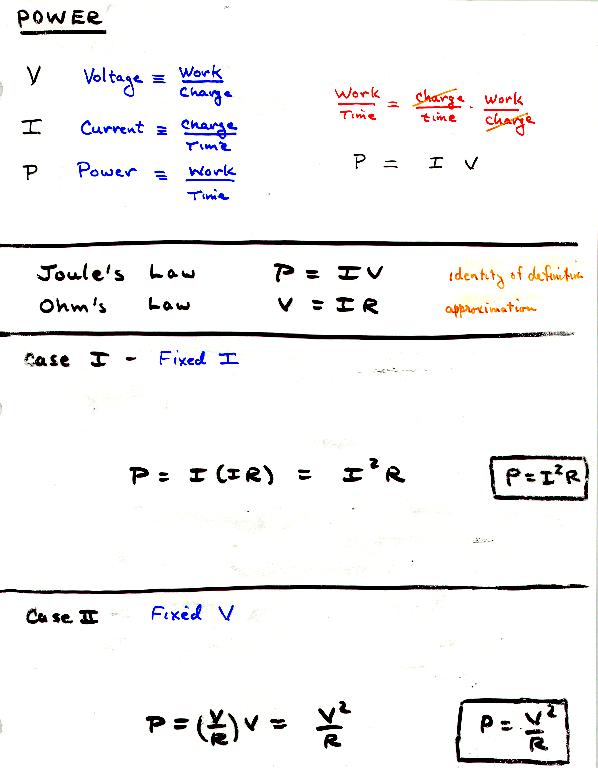 POWER
V Voltage ≡ Work/Charge
I Current ≡ Charge/Time
P Power ≡ Work/Time
Work/Time = Charge/time · Work/Charge
P = I V
Joule's Law P = IV identity of definition
Ohm's Law V = IR approximation
Case I - Fixed I
P = I(IR) = I²R P=I²R
Case II Fixed V
P = (V/R)V = V²/R P = V²/R